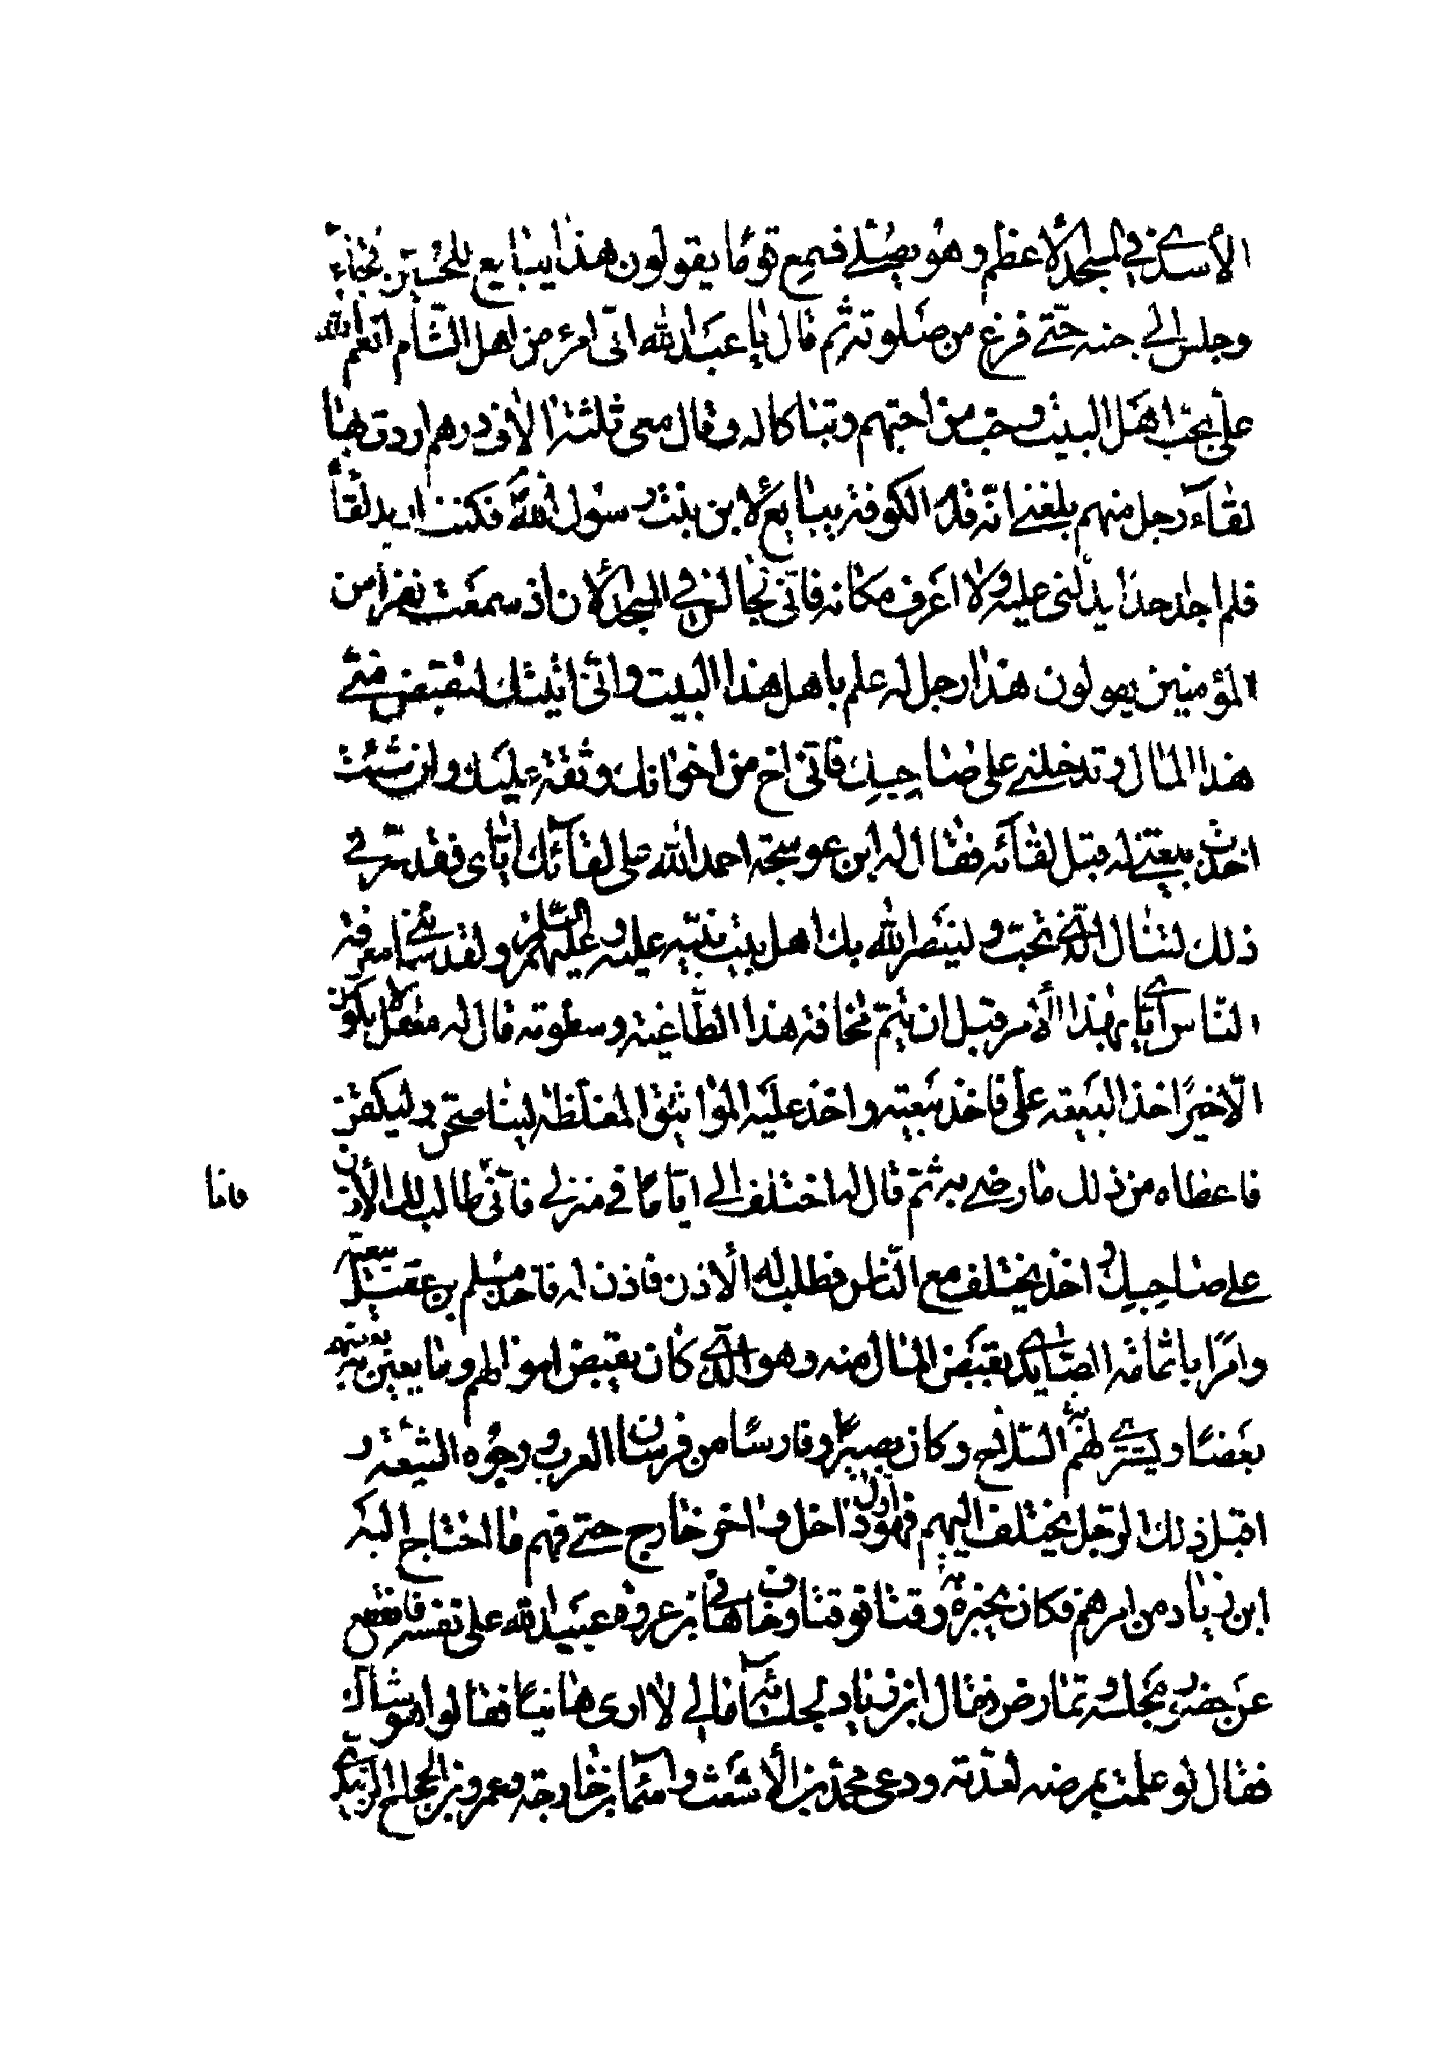 الأسدي في المسجد الأعظم وهو يصلي فسمع قوما يقولون هذا يبايع للحسين فجاء
وجلس الى جنبه حتى فرغ من صلوته ثم قال يا عبد الله اني امرء من اهل الشام انعم الله
علي بحب اهل البيت وحب من احبهم وتباكا له وقال معي ثلثة الاف درهم اردت بها
لقاء رجل منهم بلغني انه قدم الكوفة يبايع لابن بنت رسول الله فكنت اريد لقاء
فلم اجد احدا يدلني عليه ولا اعرف مكانه فاني لجالس في المسجد الان اذ سمعت نفرا من
المؤمنين يقولون هذا رجل له علم باهل هذا البيت واني اتيتك لتقبض مني
هذا المال وتدخلني على صاحبك فاني اخ من اخوانك وثقة عليك وان شئت
اخذت بيعتي له قبل لقائه فقال له ابن عوسجة احمد الله على لقائك اياي فقد سرني
ذلك لتنال الذي تحب ولينصر الله بك اهل بيت نبيه عليه وعليهم السلم ولقد ساءني معرفة
الناس اياي بهذا الأمر قبل ان يتم مخافة هذا الطاغية وسطوته قال له معقل لا يكون
الا خيرا خذ البيعة علي فاخذ بيعته واخذ عليه المواثيق المغلظة ليناصحن وليكتمن
فاعطاه من ذلك ما رضي به ثم قال له اختلف الي اياما في منزلي فاني طالب لك الأذن
فاما
على صاحبك واخذ يختلف مع الناس فطلب له الأذن فاذن له فاخذ مسلم بن عقيل بيعته
وامر ابا ثمامة الصايدي بقبض المال منه وهو الذي كان يقبض اموالهم وما يعين به بعضهم
بعضا ويشتري لهم السلاح وكان بصيرا وفارسا من فرسان العرب ووجوه الشيعة و
اقبل ذلك الرجل يختلف اليهم فهو اول داخل واخر خارج حتى فهم ما احتاج اليه
ابن زياد من امرهم فكان يخبره به وقتا فوقتا وخاف هاني بن عروة عبيد الله على نفسه فانقطع
عن حضور مجلسه وتمارض فقال ابن زياد لجلسائه ما لي لا ارى هانيا فقالوا هو شاك
فقال لو علمت بمرضه لعدته ودعى محمد بن الأشعث واسماء بن خارجة وعمرو بن الحجاج الزبيدي